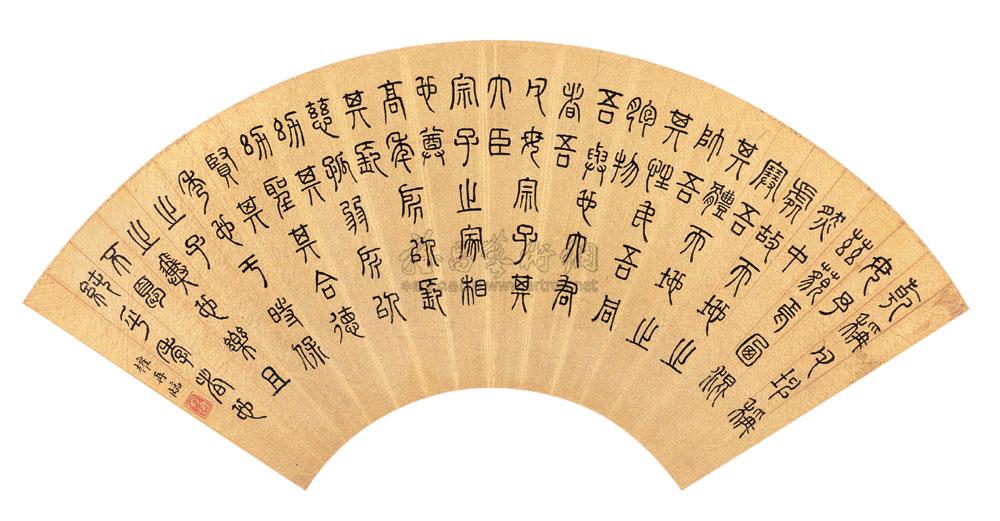 乾稱父坤稱
母予
茲藐焉乃混
然中
處故天地之
塞吾
其體天地之
帥吾
其性民吾同
胞物
吾與也大君
者吾
父母宗子其
大臣
宗子之家相
也尊
高年所以長
其長
慈孤弱所以
幼其
幼聖其合德
賢其
秀也于時保
之子
之翼也樂且
不憂
純乎孝者也